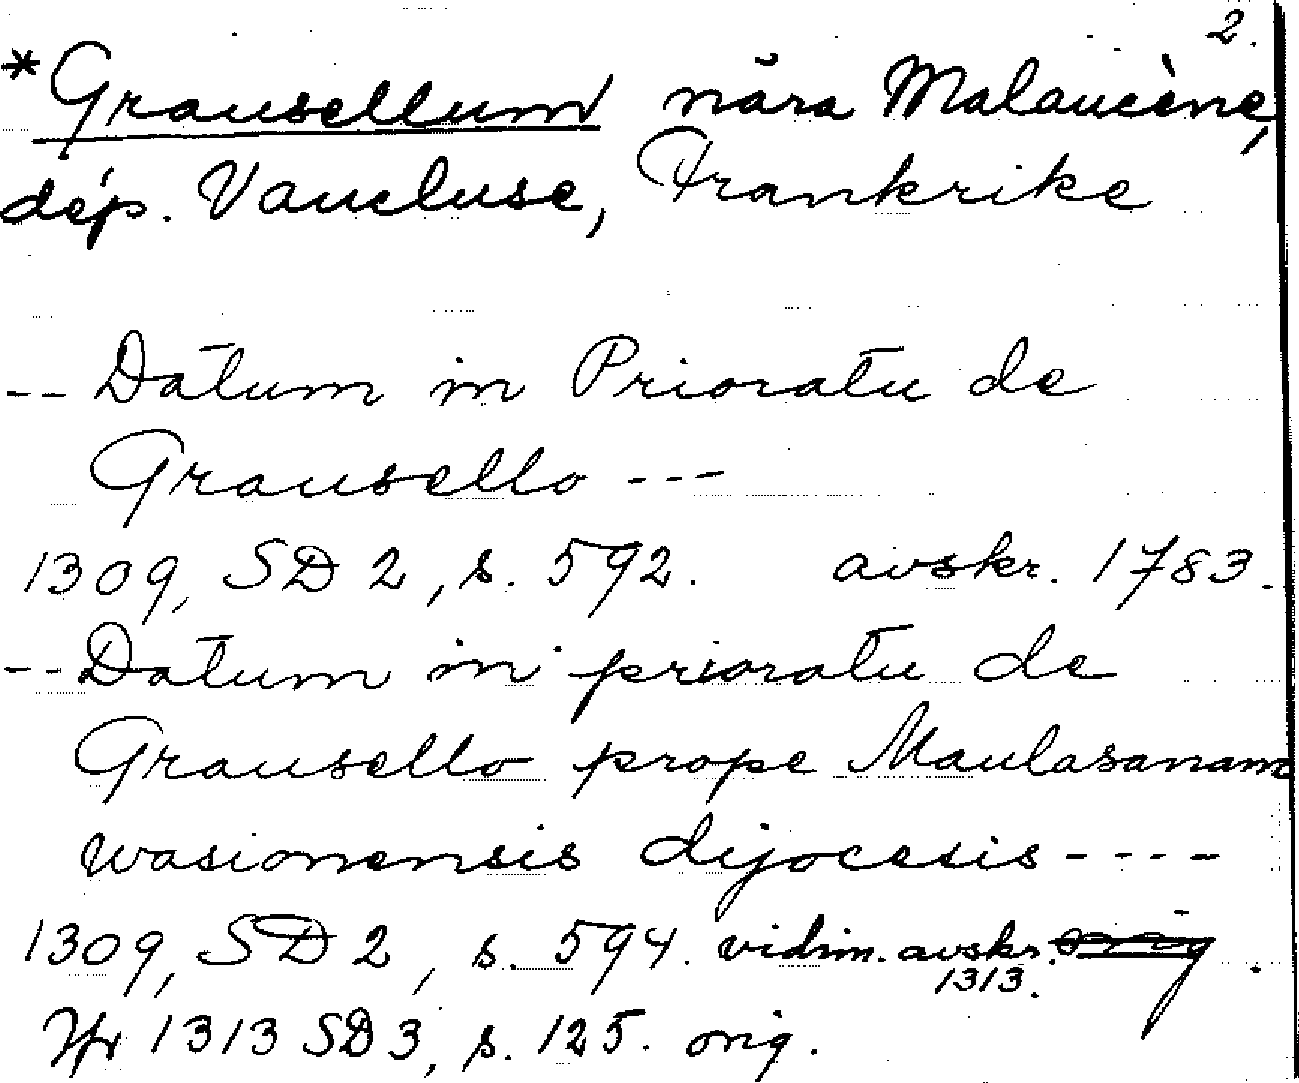 2.
*Grausellum nära Malaucène,
dép. Vaucluse, Frankrike
-- Datum in Prioratu de
Grausello ---
1309, SD 2, s. 592. avskr. 1783.
-- Datum in prioratu de
Grausello prope Maulasanam
wasionensis dijocesis ----
1309, SD 2, s. 594. vidim. avskr. orig
1313.
Jfr 1313 SD 3, s. 125. orig.